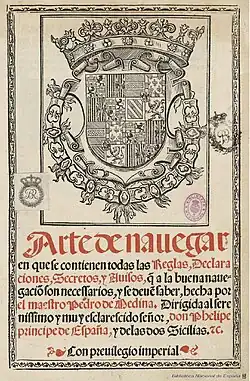 Arte de nauegar
en que se contienen todas las Reglas, Declara
ciones, Secretos, y Auisos, q̃ a la buena naue
gaciõ son necessarios, y se deuẽ saber, hecha por
el maestro Pedro de Medina. Dirigida al sere
nissimo y muy esclarescido señor, don Phelipe
principe de España, y delas dos Sicilias. ⁊c.
Con preuilegio imperial
Biblioteca Nacional de España